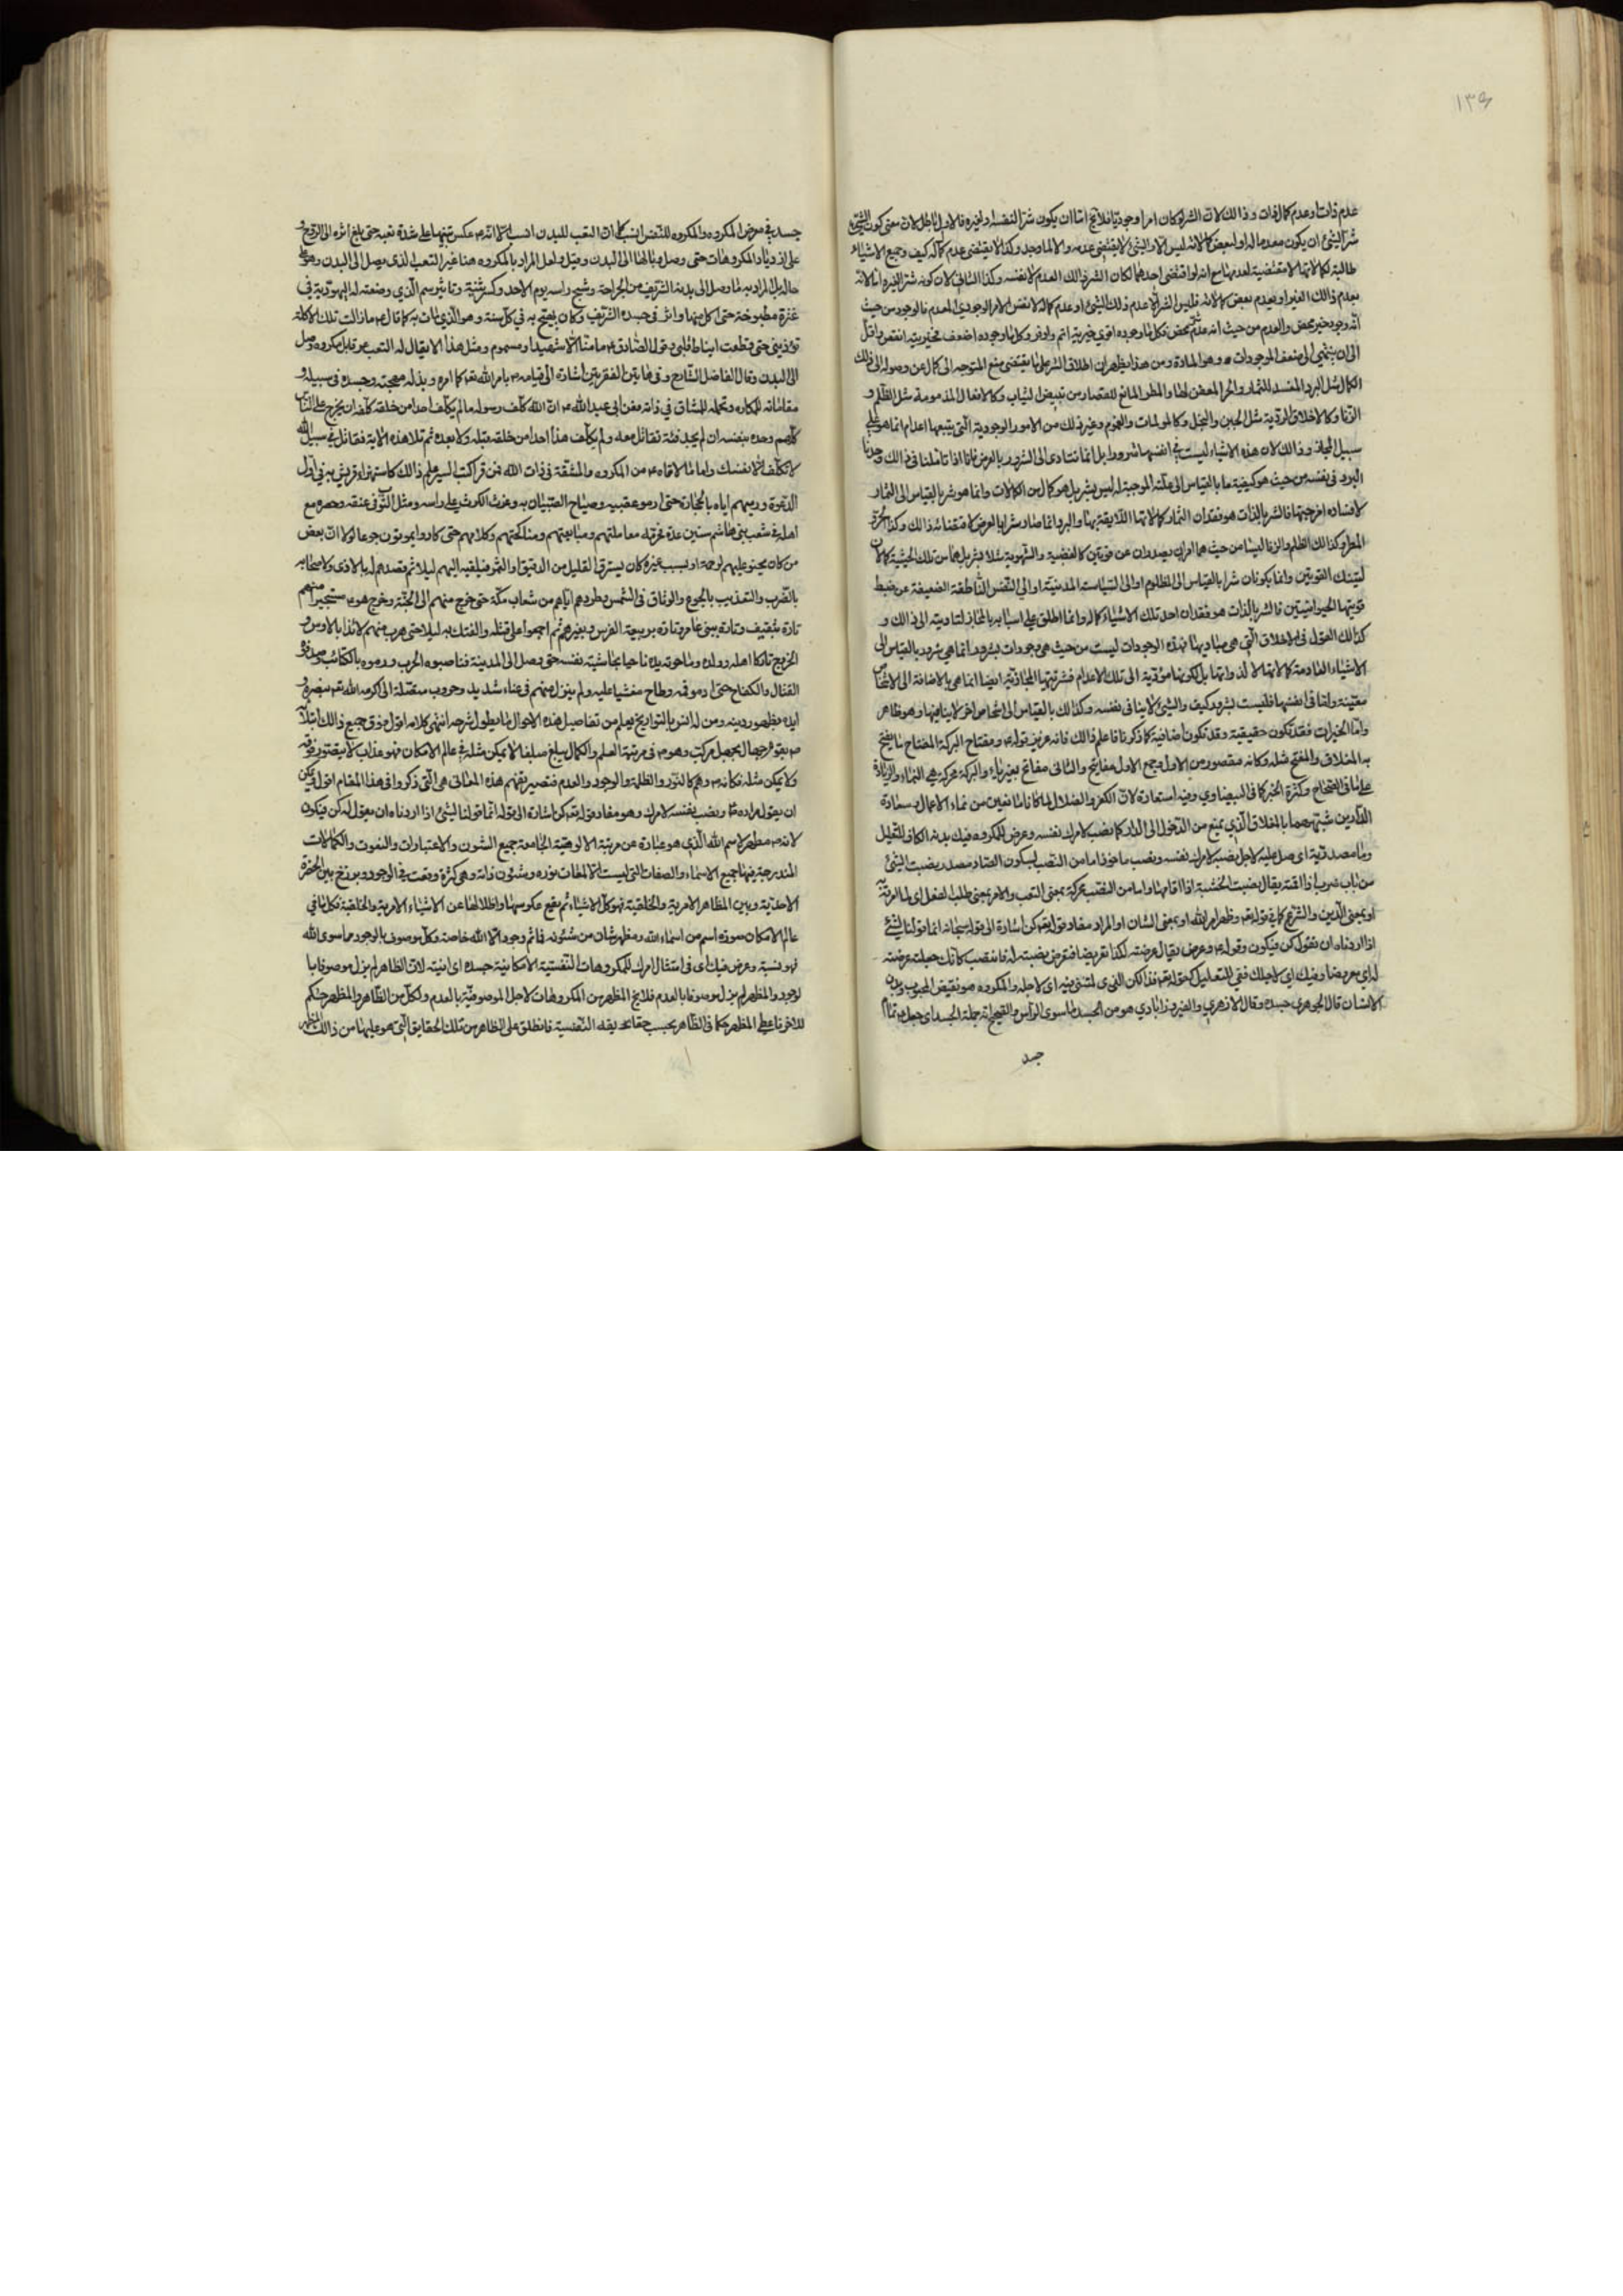 ١٣٩
عدم ذات او عدم كمال لذات وذالك لان الشر لو كان امرا وجوديا فلا يخ اما ان يكون شرا لنفسه او لغيره فالاول باطل لان معنى كون الشئ
شر الشئ ان يكون معدما له او لبعض كمالاته ليس الا والشئ لا يقتضى عدمه والا لما وجد وكذا لا يقتضى عدم كماله كيف وجميع الاشياء
طالبة لكمالاتها لا مقتضية لعدمها مع انه لو اقتضى احدهما لكان الشر ذالك العدم لا نفسه وكذا الثانى لان كونه شرا لغيره اما لانه
يعدم ذالك الغير او يعدم بعض كمالاته فليس الشر الا عدم ذلك الشئ او عدم كماله لا نفس الامر الوجودى المعدم فالوجود من حيث
انه وجود خير محض والعدم من حيث انه عدم شر محض فكل ما وجوده اقوى خيريته اتم واوفر وكل ما وجوده اضعف فخيريته انقص واقل
الى ان ينتهى الى ضعف الموجودات وهو المادة ومن هذا يظهر ان اطلاق الشر على ما يقتضى منع المتوجه الى كمال عن وصوله الى ذلك
الكمال مثل البرد المفسد للثمار والحر المعفن لها والمطر المانع للقصار من تبييض الثياب وكالافعال المذمومة مثل الظلم و
الزنا وكالاخلاق الردية مثل الجبن والبخل وكالمولمات والغموم وغير ذلك من الامور الوجودية التى يتبعها اعدام انما هو على
سبيل المجاز وذالك لان هذه الاشياء ليست فى انفسها شرورا بل انما تتادى الى الشرور بالعرض فانا اذا تاملنا فى ذالك وجدنا
البرد فى نفسه من حيث هو كيفية ما بالقياس الى علته الموجبة له ليس بشر بل هو كمال من الكمالات وانما هو شر بالقياس الى الثمار
لافساده امزجتها فالشر بالذات هو فقدان الثمار كمالاتها اللايقة بها والبرد انما صار شرا بالعرض لاقتضائه ذالك وكذا الحر و
المطر وكذالك الظلم والزنا ليسا من حيث هما امران يصدران عن قوتين كالغضبية والشهوية مثلا بشر بل هما من تلك الحيثية كمالان
لتينك القوتين وانما يكونان شرا بالقياس الى المظلوم او الى السياسة المدنية او الى النفس الناطقة الضعيفة عن ضبط
قوتيها الحيوانيتين فالشر بالذات هو فقدان احد تلك الاشياء كماله وانما اطلق على اسبابه بالمجاز لتاديته الى ذالك و
كذالك القول فى الاخلاق التى هى مباديها فهذه الوجودات ليست من حيث هى وجودات بشرور انما هى شرور بالقياس الى
الاشياء العادمة كمالاتها لا لذواتها بل لكونها مؤدية الى تلك الاعدام فشريتها المجازية ايضا انما هى بالاضافة الى الاشخاص
معينة واما فى انفسها فليست بشرور كيف والشئ لا ينافى نفسه وكذالك بالقياس الى اشخاص اخر لا ينافيها وهو ظاهر
واما الخيرات فقد تكون حقيقية وقد تكون اضافية كما ذكرنا فاعلم ذالك فانه عزيز قوله ومفتاح البركة المفتاح ما يفتح
به المغلاق والمفتح مثله وكانه مقصور من الاول وجمع الاول مفاتيح والثانى مفاتح بغير ياء والبركة محركة هى النماء والزيادة
على ما فى الصحاح وكثرة الخير كما فى البيضاوي وفيه استعارة لان الكفر والضلال لما كانا مانعين من نماء الاعمال وسعادة
الدارين شبههما بالمغلاق الذي يمنع من الدخول الى الدار كما نصب لامرك نفسه وعرض للمكروه فيك بدنه الكاف للتعليل
وما مصدرية اى صل عليه لاجل نصبه لامرك نفسه ونصب ماخوذ اما من النصب بسكون الصاد مصدر نصبت الشئ
من باب ضرب اذا اقمته يقال نصبت الخشبة اذا اقامها واما من النصب محركة بمعنى التعب والامر بمعنى طلب الفعل
او بمعنى الدين والشرع كما فى قوله تعه وظهر امر الله او بمعنى الشان او المراد مفاد قوله تعه كن اشارة الى قوله سبحانه انما قولنا لشئ
اذا اردناه ان نقول له كن فيكون وقوله وعرض يقال عرضته لكذا تعريضا فتعرض نصبته له فانتصب كانك جعلته عرضة
له اي معرضا وفيك اي لاجلك ففى للتعليل كقوله تعه فذالكن الذى لمتننى فيه اى لاجله والمكروه هو نقيض المحبوب وبدن
الانسان قال الجوهرى جسده وقال الازهري والفيروزابادي هو من الجسد ما سوى الراس
جسد
جسده فى معرض المكروه والمكروه للنفس انسب كما ان التعب للبدن انسب الا انه عكس تنبيها على شدة تعبه حتى بلغ اثره الى الروح و
على ازدياد المكروهات حتى وصل وبالها الى البدن وقيل ولعل المراد بالمكروه هنا غير التعب الذى يصل الى البدن وهو على
حاله بل المراد به ما وصل الى بدنه الشريف من الجراحة وشج راسه يوم الاحد وكسر ثنيته وتاثير سم الذي وضعته له اليهودية فى
عنزة مطبوخة حتى اكل منها واثر فى جسده الشريف وكان يهيج به فى كل سنة وهو الذي مات به كما قال ما زالت تلك الاكلة
تؤذينى حتى قطعت انياط قلبى وقول الصادق ما منا الا شهيد او مسموم ومثل هذا لا يقال له التعب
الى البدن وقال الفاضل الشارح وفى هاتين الفقرتين اشارة الى قيامه بامر الله تعه كما امره وبذله مهجته وجسده فى سبيله و
مقاساته للمكاره وتحمله المشاق فى ذاته فعن ابى عبد الله ان الله كلف رسوله ما لم يكلف احدا من خلقه كلفه ان يخرج على الناس
كلهم وحده بنفسه ان لم يجد فئة تقاتل معه ولم يكلف هذا احدا من خلقه قبله ولا بعده ثم تلا هذه الاية فقاتل فى سبيل الله
لا تكلف الا نفسك واما ما لاقاه من المكروه والمشقة فى ذات الله فمن قرا كتب السير علم ذالك كاستهزاء قريش به فى اول
الدعوة ورميهم اياه بالحجارة حتى ادموا عقبيه وصياح الصبيان به وفرث الكرش على راسه ومثل الثوب فى عنقه وحصره مع
اهله فى شعب بنى هاشم سنين عدة محرمة معاملتهم ومبايعتهم ومناكحتهم وكلامهم حتى كادوا يموتون جوعا لولا ان بعض
من كان يحنو عليهم لرحم او لسبب غيره كان يسترق القليل من الدقيق والتمر فيلقيه اليهم ليلا ثم قصدهم له بالاذى ولاصحابه
بالضرب والتعذيب بالجوع والوثاق فى الشمس وطردهم اياهم من شعاب مكة حتى خرج منهم الى الحبشة وخرج هو مستجيرا منهم
تارة بثقيف وتارة ببنى عامر وتارة بربيعة الفرس وبغيرهم ثم اجمعوا على قتله والفتك به ليلا حتى هرب منهم لائذا بالاوس و
الخزرج تاركا اهله وولده وما حوته يده ناجيا بحشاشة نفسه حتى وصل الى المدينة فناصبوه الحرب ورموه بالكتائب
القتال والكفاح حتى ادموا فمه وطاح مغشيا عليه ولم يزل منهم فى عناء شديد وحروب متصلة الى اكرمه الله تعه بنصره و
ايده بظهور دينه ومن له انس بالتواريخ يعلم من تفاصيل هذه الاحوال ما يطول شرحه انتهى كلامه اقول فوق جميع ذالك ابتلاؤه
بقوم جهال بجهل مركب وهو فى مرتبة العلم والكمال يبلغ مبلغا لا يمكن مثله فى عالم الامكان فهو عذاب لا يتصور فوقه
ولا يمكن مثله فكانه وهم كالنور والظلمة والوجود والعدم فتصير تفهم هذه المعانى هى التى ذكروا فى هذا المقام اقول يمكن
ان يقول مراده ونصب نفسه لامرك وهو مفاد قوله تعه كن اشارة الى قوله انما قولنا لشئ اذا اردناه ان نقول له كن فيكون
لانه مظهر لاسم الله الذي هو عبارة عن مرتبة الالوهية الجامعة جميع الشئون والاعتبارات والنعوت والكمالات
المندرجة فيها جميع الاسماء والصفات التى ليست الا لمعات نوره وشئون ذاته وهى كثرة وقعت فى الوجود وبرزخ بين الحضرة
الاحدية وبين المظاهر الامرية والخلقية فهو كل الاشياء ثم يقع عكوسها واظلالها عن الاشياء الامرية والخلقية فكل ما فى
عالم الامكان صورة اسم من اسماء الله ومظهر شان من شئونه فما ثم وجود الا الله خاصة وكل موصوف بالوجود مما سوى الله
فهو نسبة وعرض فيك اى فى امتثال امرك للمكروهات النفسية الامكانية جسده اى انيته لان الظاهر لم يزل موصوفا با
لوجود والمظهر لم يزل موصوفا بالعدم فلا يخ المظهر من المكروهات لاجل الموصوفية بالعدم ولكل من الظاهر والمظهر حكم
للاخر فاعطى المظهر حكما فى الظاهر بحسب حقائقه النفسية فانطلق على الظاهر من تلك الحقايق التى هو عليها من ذالك المظهر